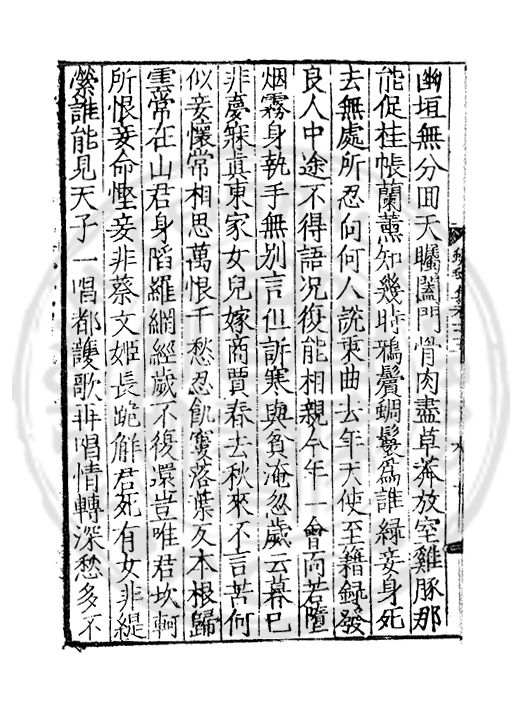 幽垣無分囬天矚闔門骨肉盡草莽放空雞豚那
能促桂帳蘭薰知幾時鴉鬢蜩鬟為誰綠妾身死
去無處所忍向何人說東曲去年天使至籍録發
良人中途不得語况復能相親今年一會面若墮
烟霧身執手無别言但訴寒與貧淹忽歲云暮巳
非夢寐真東家女兒嫁商賈春去秋來不言苦何
似妾懷常相思萬恨千愁忍飢窶落葉久本根歸
雲常在山君身陷羅網經歲不復還豈唯君坎軻
所恨妾命慳妾非蔡文姬長跪解君死有女非緹
縈誰能見天子一唱都護歌再唱情轉深愁多不